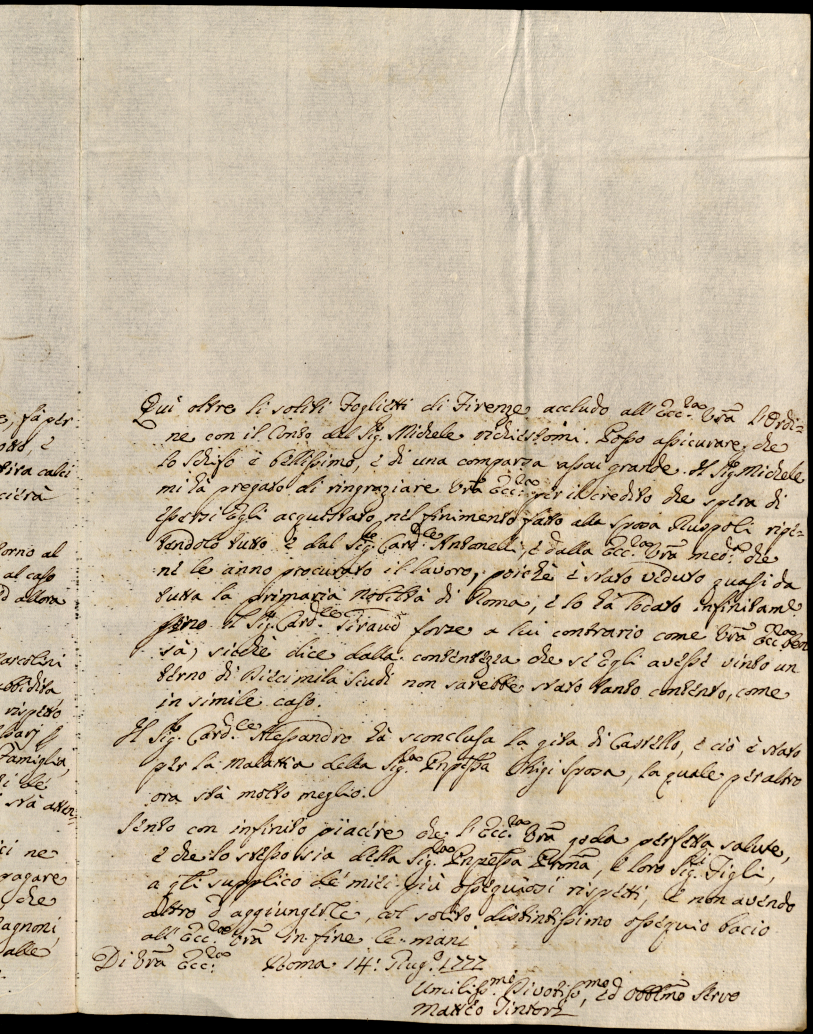 e, fà per
è
tira calci
cietà
torno al
al caso
ed allora
Marcolini
ubbidita
rispetto
Famiglia,
stà atten=
ci ne
pagare
che
agnoni,
dalle
Qui oltre li soliti Foglietti di Firenze accludo all' Ecc:za Vrã l'Ordi=
ne con il Conto del Sig. Michele richiestomi. Posso assicurare, che
lo Schifo è bellissimo, è di una comparsa assai grande. Il Sig. Michele
mi hà pregato di ringraziare Vrã Ecc:za per il credito che spera di
essersi Egli acquistato nel finimento fatto alla sposa Ruspoli ripe=
tendolo tutto è dal Sig. Card.le Antonelli, è dalla Ecc:za Vrã med.a che
ne le anno procurato il lavoro; poichè è stato veduto quasi da
tutta la primaria nobiltà di Roma, è lo hà lodato infinitame
fino il Sig. Card.le Giraud forze a lui contrario come Vrã Ecc:za ben
sà, sicchè dice dalla contentezza che se Egli avesse vinto un
terno di Diecimila Scudi non sarebbe stato tanto contento, come
in simile caso.
Il Sig. Card.le Alessandro hà sconclusa la gita di Castello, è ciò è stato
per la Malattia della Sig.ra Pnpessa Chigi sposa, la quale per altro
ora stà molto meglio.
Sento con infinito piacere che l' Ecc:za Vrã goda perfetta salute,
è che lo stesso sia della Sig.ra Pnpessa Pronã, è loro Sig.li Figli,
a gli supplico de' miei più ossequiosi rispetti, è non avendo
altro d'aggiungerle, col solito distintissimo ossequio bacio
all' Ecc:za Vrã in fine le mani
Di Vrã Ecc:za Roma 14: Giug.o 1777
Umiliss.mo Divotiss.mo, ed Obblmo Serve
Matteo Tintori